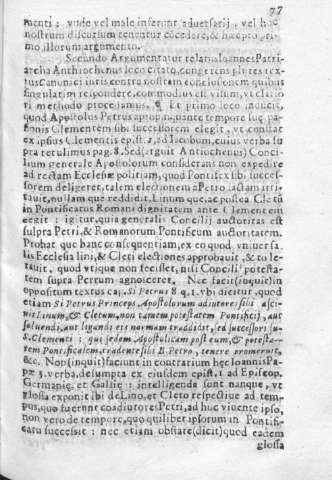 77
menti ; vnde vel male inferunt aduersarij , vel hac
nostrum discursum tenentur cõcedere, & hæc pro pri-
mo illorum argumento.
Secundo Argumentatur relatus Ioannes Patri-
archa Anthiochenus loco citato, congerens plures tex-
tus Canonici iuris contra nostram conclusionem quibus
singulatim respondere, commodius est visum, vt clario
ri methodo procedamus. ¶ Et primo loco inducit,
quod Apostolus Petrus apropinquante tempore suę pas-
sionis Clementem sibi successorem elegit , vt constat
ex ipsius Clementis epist. 1, ad Iacobum, cuius verba su
pra retulimus pag. 8. Sed (arguit Antiochenus) Conci-
lium generale Apostolorum considerans non expedire
ad rectam Ecclesiæ politiam, quod Pontifex sibi succes-
sorem deligeret, talem electionem à Petro factam irri-
tauit, nullam que reddidit. Linum que, ac postea Cletũ
in Pontificatus Romani dignitatem ante Clementem
eegit : igitur, quia generalis Concilij auctoritas est
supra Petri, & Romanorum Pontificum auctoritatem.
Probat que hanc consequentiam, ex eo quod vniuersa-
lis Ecclesia lini, & Cleti electiones approbauit , & to le-
rauit , quod vtique non fecisset, nisi Concilij potesta-
tem supra Petrum agnosceret, Nec facit (inquit) in
oppositum textus ca, Si Petrus 8 q. 1. vbi dicitur , quod
etiam Si Petrus Princeps Apostolorum adiutores sibi asci-
uit Linum, & Cletum, non tamen potestatem Pontificij, aut
soluendi, aut ligandi eis normam tradidit, sed successori su-
S. Clementi : qui sedem Apostolicam post eum, & potesta-
tem Pontificalem, tradente sibi B. Petro , tenere promeruit,
&c. Non (inquit) faciunt in contrarium hęc Ioannis Pa-
pæ 3, verba, desumpta ex eiusdem epist. 1 ad Episcop.
Germanię, et Gallię : intelligenda sunt nanque , vt
glossa exponit ibi de Lino, et Cleto respectiue ad tem-
pus, quo fuerunt coadiutores Petri, ad huc viuente ipso,
non vero de tempore, quo quilibet ipsorum in Pontifi-
catu successit : nec etiam obstare (dicit) quod eadem
glossa